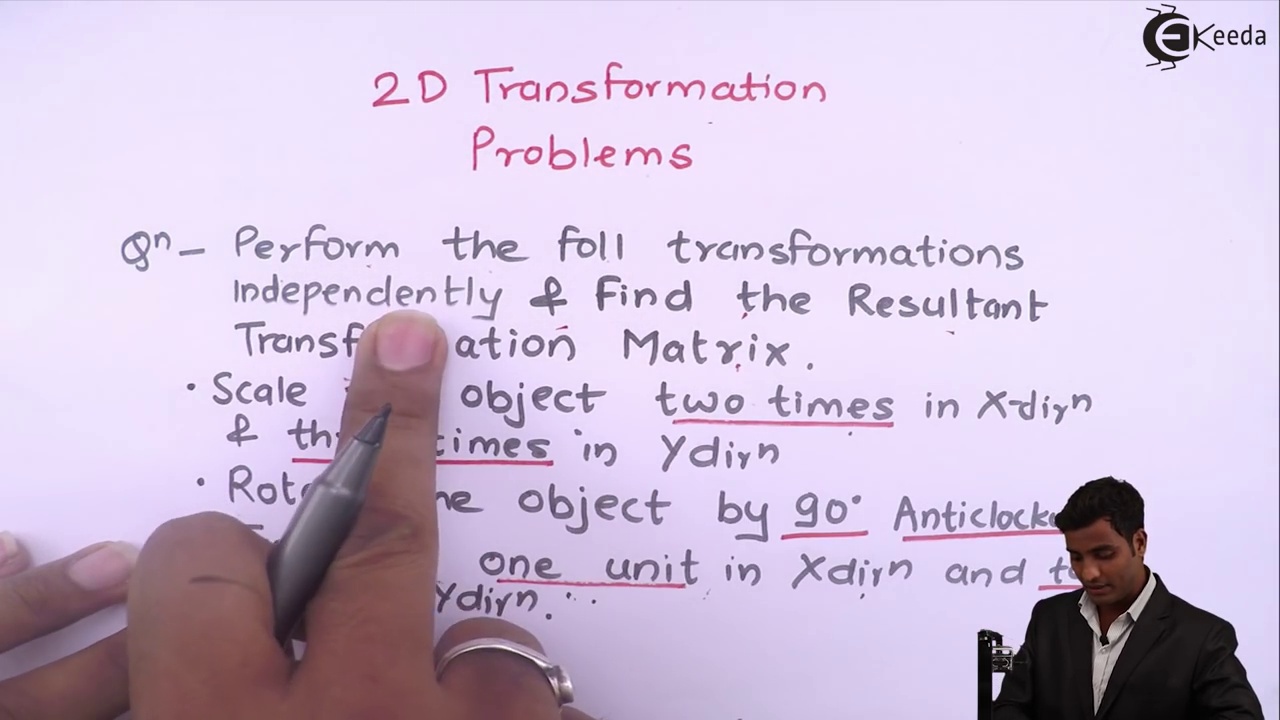 EKeeda
2D Transformation
Problems
Qn – Perform the foll transformations
Independently & Find the Resultant
Matrix.
• Scale object two times in X-dirn
& times in Ydirn
• object by 90° Anticlock
one unit in Xdirn and
Ydirn.